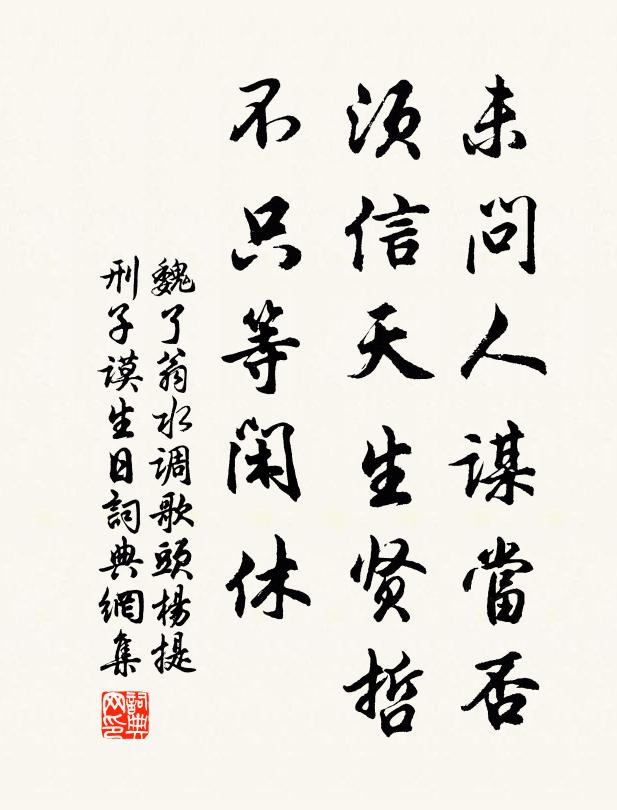 未问人谋當否
须信天生贤哲
不只等闲休
魏了翁水调歌頭楊提
刑子谟生日詞典網集
詞典网印